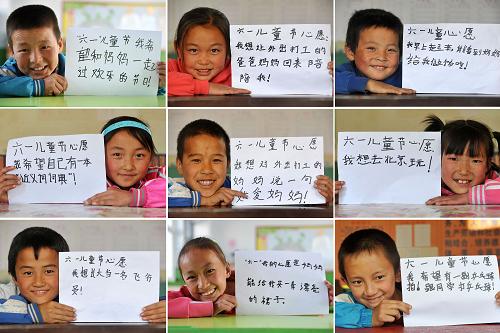 六一儿童节我希
望和妈妈一起
过欢乐的节日!
六一儿童节心愿
我想让外出打工的
爸爸妈妈回来陪
陪我!
六一儿童节心愿
给我做饭吃!
六一儿童节心愿
我希望自己有一本
六一儿童节心愿
我想对外出打工的
妈妈说一句
爱妈妈!
六一儿童节心愿
我想去北京玩!
六一儿童节心愿
我想长大当一名飞行
员!
"六一"我的心愿是妈妈
能给我买一条漂亮
的裙子
六一儿童节心愿
我希望有一副乒乓球
拍!